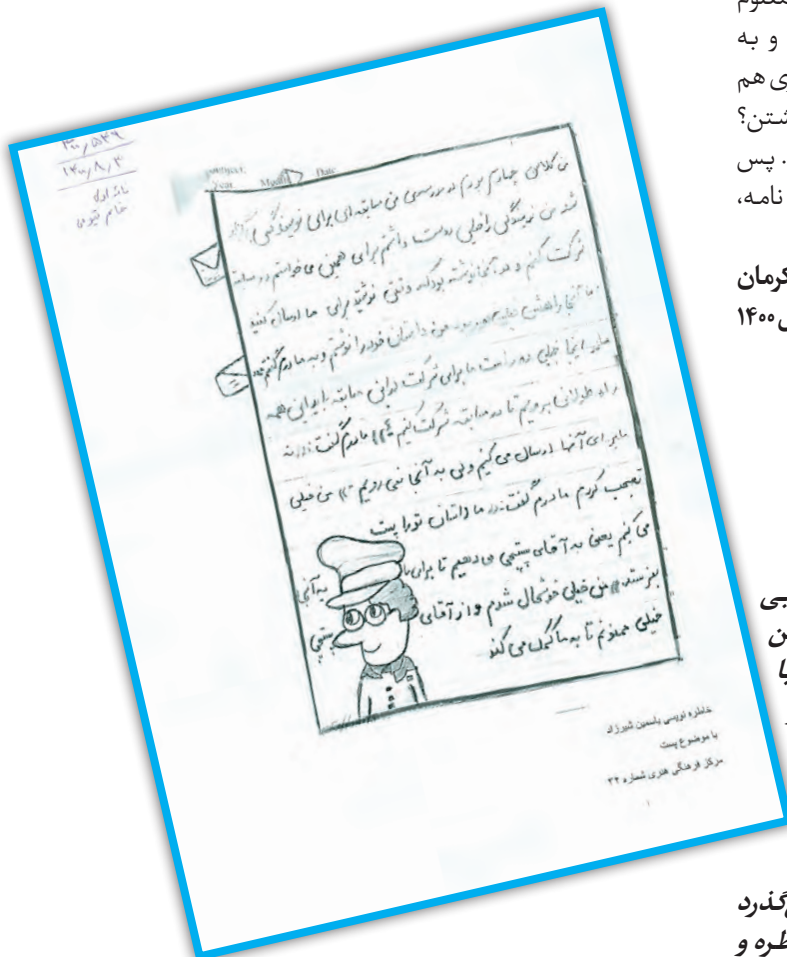 و به
ی هم
شتن؟
. پس
نامه،
کرمان
۱۴۰۰
۳۰٫۵۴۹
۱۴۰۰٫۸٫۴
خانم
Year Month Date
من کلاس چهارم بودم در مدرسه‌ی من مسابقه‌ای برای نویسندگی
شد من نویسندگی را خیلی دوست داشتم برای همین می‌خواستم در مسابقه
شرکت کنم و در آنجا نوشته بود که وقتی نوشتید برای ما ارسال کنید
اما آنجا راهش خیلی دور بود. من داستان خود را نوشتم و به مادرم گفتم:
مادر اینجا خیلی دور است ما برای شرکت در این مسابقه باید این همه
راه طولانی برویم تا در مسابقه شرکت کنیم؟» مادرم گفت: نه
ما برای آنها ارسال می‌کنیم ولی به آنجا نمی‌رویم.» من خیلی
تعجب کردم مادرم گفت: ما داستان تو را پست
می‌کنیم یعنی به آقای پستچی می‌دهیم تا برای ما به آنجا
بفرستد.» من خیلی خوشحال شدم و از آقای پستچی
خیلی ممنونم تا به ما کمک می‌کند
خاطره نویسی یاسمین شیرزاد
با موضوع پست
مرکز فرهنگی هنری شماره ۳۴
۱
بی
ن
با
گذرد
طره و